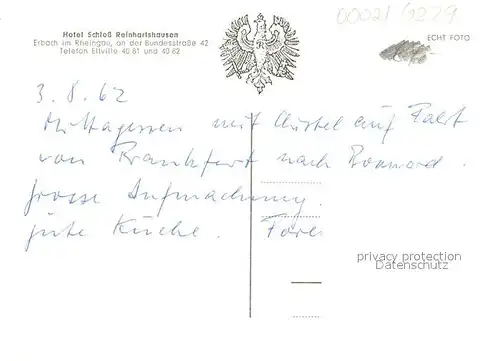 Hotel Schloß Reinhartshausen
Erbach im Rheingau, an der Bundesstraße 42
Telefon Eltville 40 81 und 40 82
ECHT FOTO
3. 8. 62
Mittagessen mit Christel auf Fahrt
von Frankfurt nach Boppard.
grosse Aufmachung.
gute Küche.
privacy protection
Datenschutz